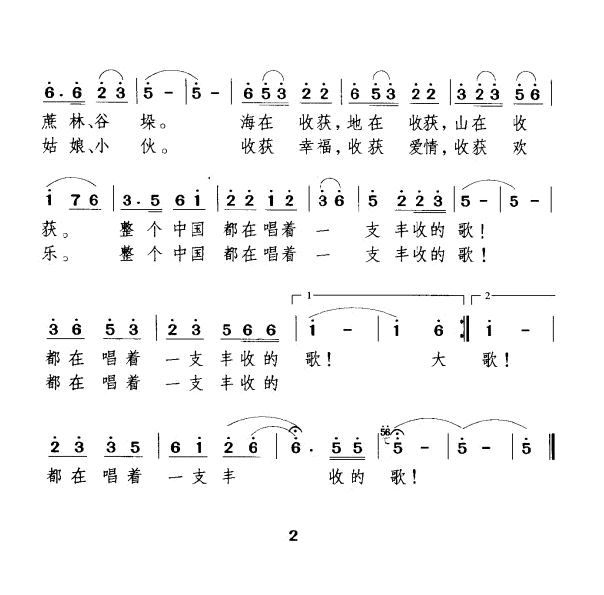 6. 6 2 3 | 5 - | 5 - | 6 5 3 2 2 | 6 5 3 2 2 | 3 2 3 5 6
蔗 林、谷 垛。 海在 收获, 地在 收获, 山在 收
姑 娘、小 伙。 收获 幸福, 收获 爱情, 收获 欢
1 7 6 | 3. 5 6 1 | 2 2 1 2 | 3 6 | 5 2 2 3 | 5 - | 5 - |
获。 整 个 中国 都在唱着 一 支 丰收的 歌!
乐。 整 个 中国 都在唱着 一 支 丰收的 歌!
1 2
3 6 5 3 | 2 3 5 6 6 | 1 - | 1 6 :| 1 - |
都在 唱着 一支 丰收的 歌! 大 歌!
都在 唱着 一支 丰收的
56
2 3 3 5 | 6 1 2 6 | 6. 5 5 | 5 - | 5 - | 5 ||
都在唱着 一支丰 收的 歌!
2